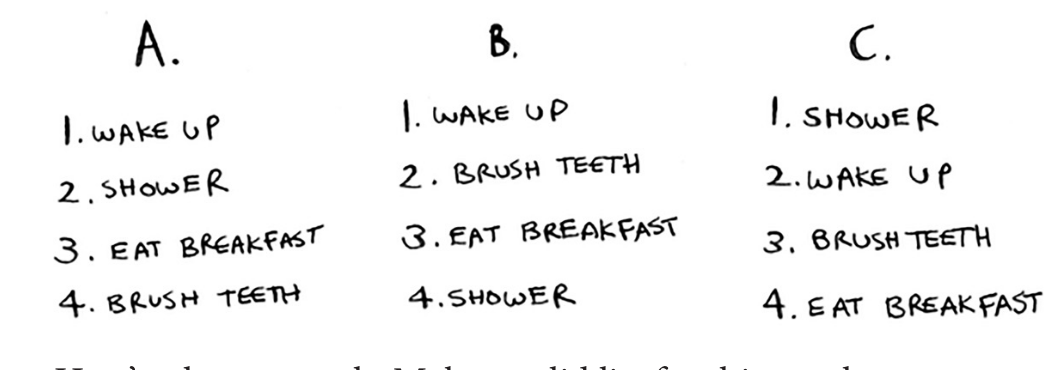 A.
1. WAKE UP
2. SHOWER
3. EAT BREAKFAST
4. BRUSH TEETH
B.
1. WAKE UP
2. BRUSH TEETH
3. EAT BREAKFAST
4. SHOWER
C.
1. SHOWER
2. WAKE UP
3. BRUSH TEETH
4. EAT BREAKFAST